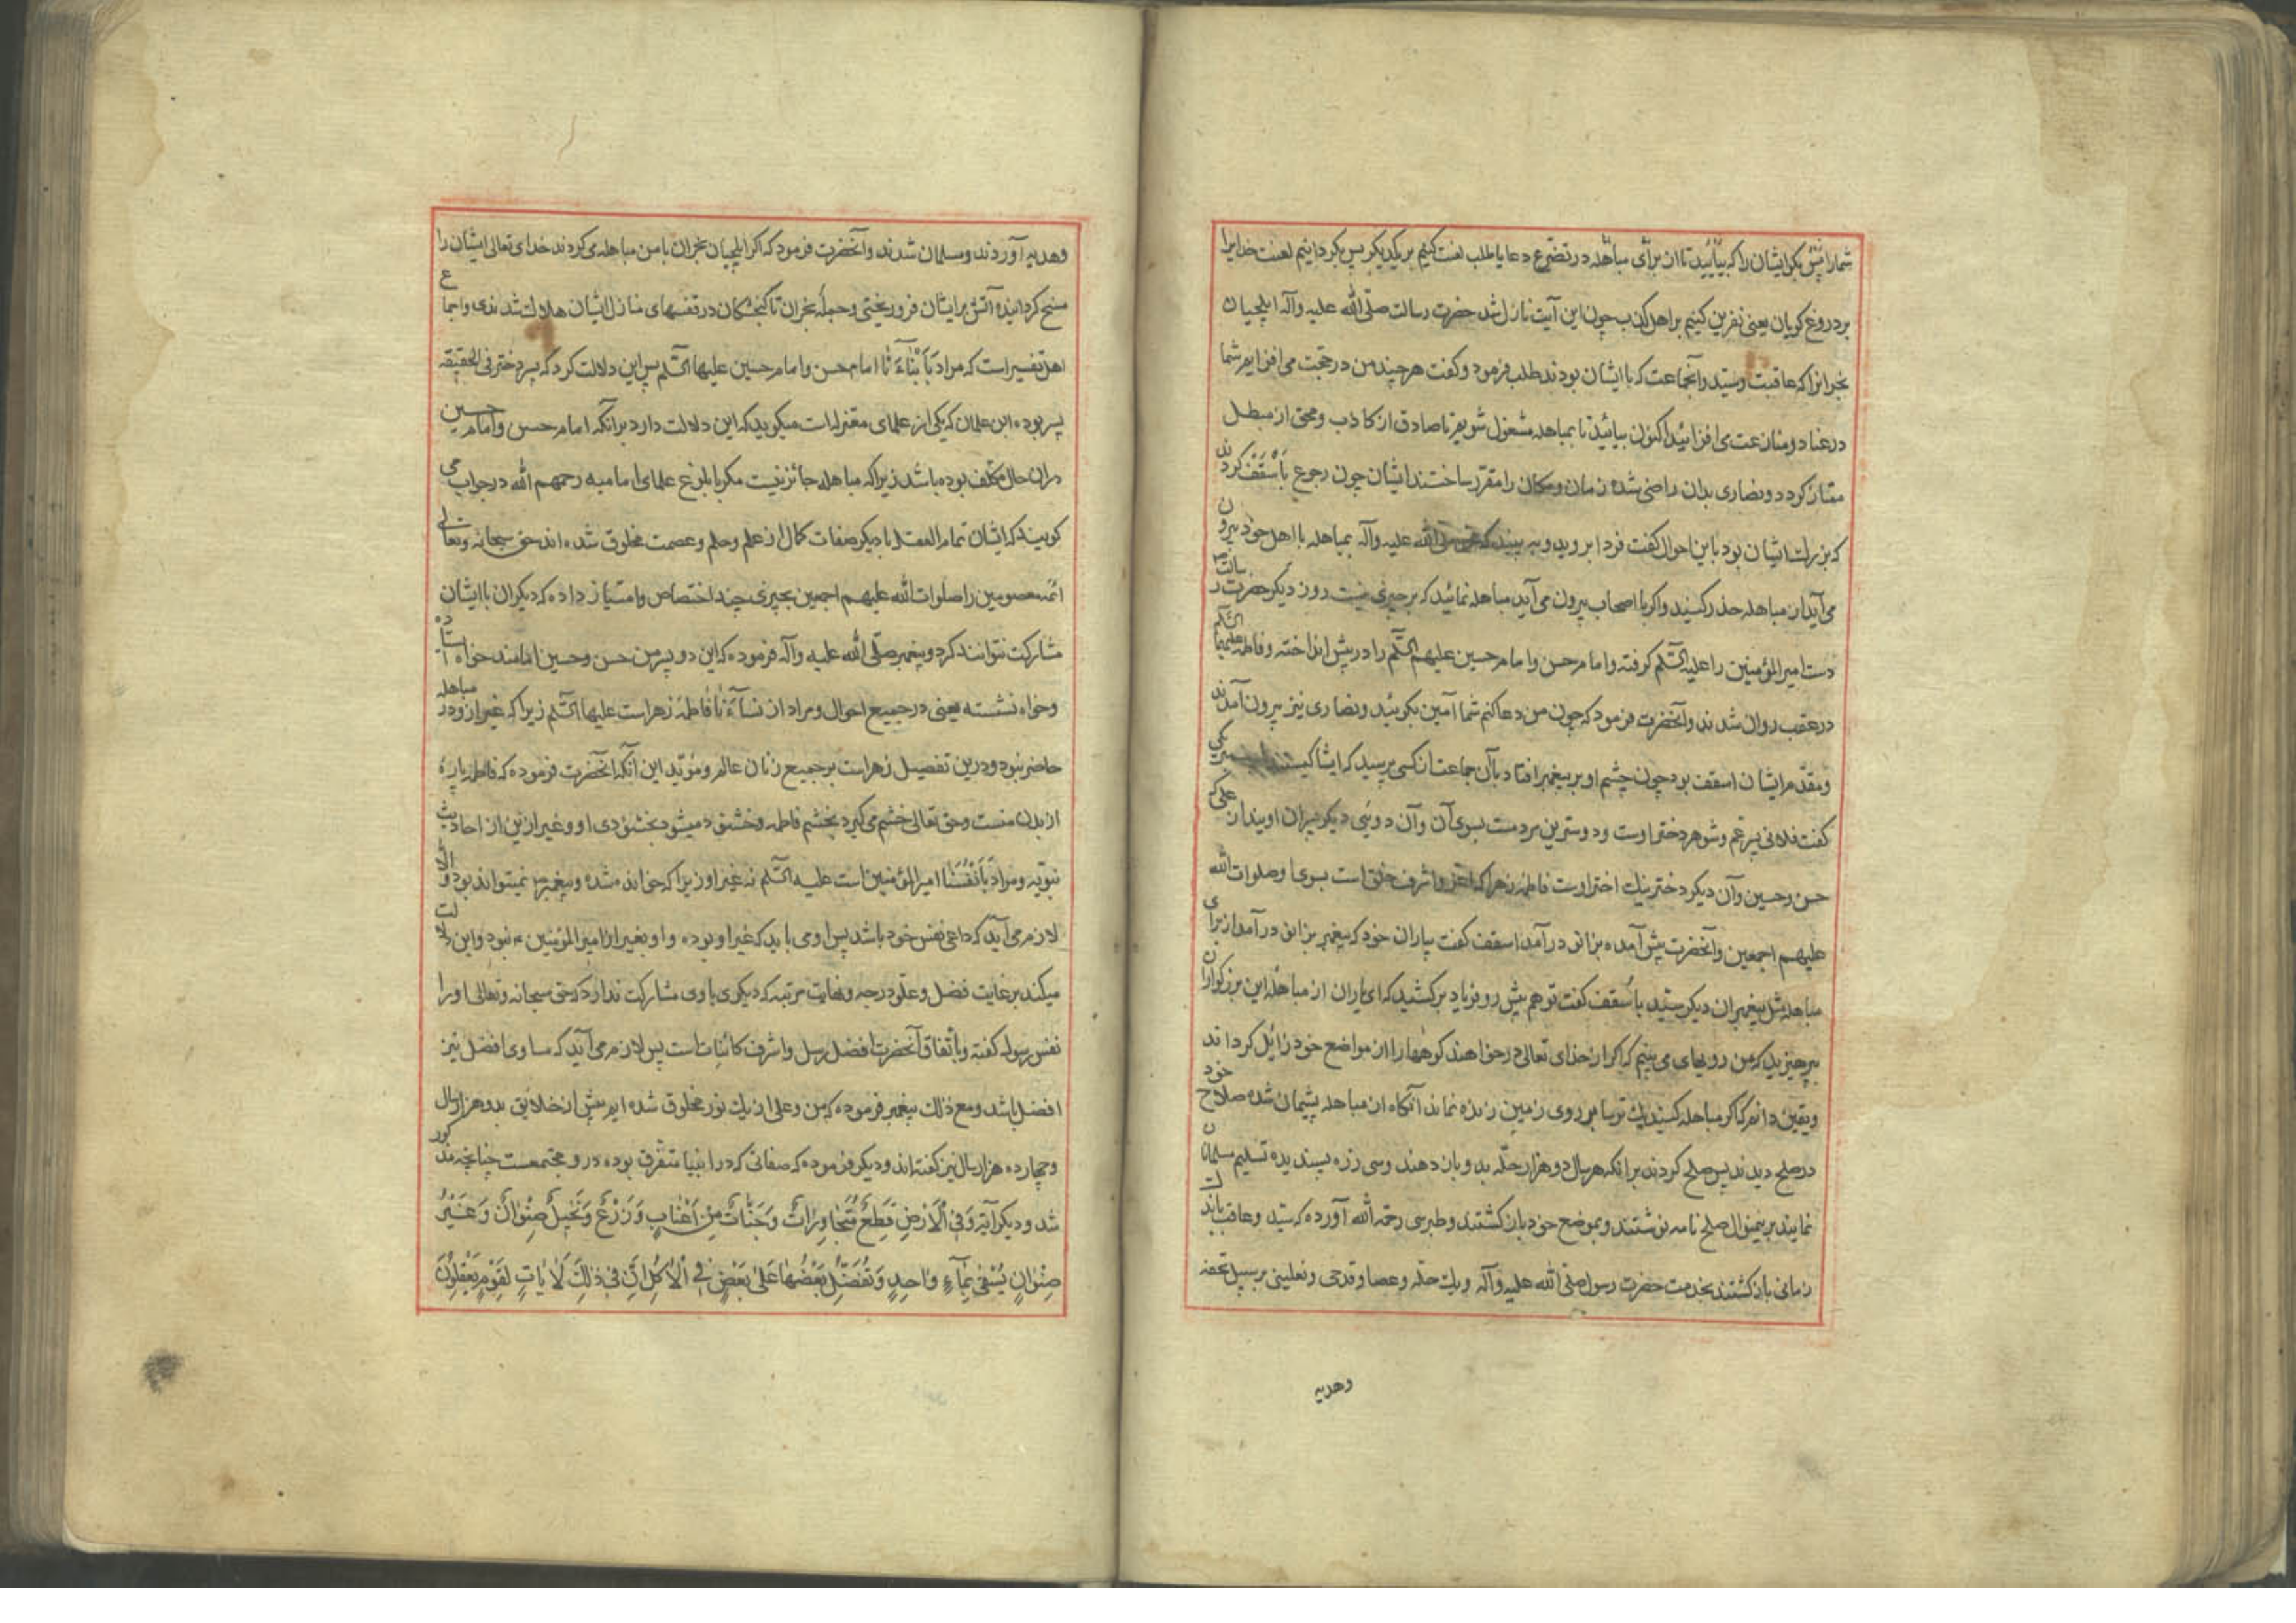 شما را پس بگو ایشان را که بیائید تا از برای مباهله در تضرع دعا یا طلب لعنت کنیم بر یکدیگر پس بگردانیم لعنت خدا یرا
بر دروغ گویان یعنی نفرین کنیم بر اهل کذب چون این آیت نازل شد حضرت رسالت صلّی الله علیه وآله ایلچیان
نجرانرا که عاقبت و سیّد وآنجماعت که با ایشان بودند طلب فرمود و گفت هر چند من در حجّت می افزایم شما
در عناد و منازعت می افزائید اکنون بیائید تا بمباهله مشغول شویم تا صادق از کاذب و محق از مبطل
ممتاز گردد و نصاری بدان راضی شده زمان و مکان را مقرّر ساختند ایشان چون رجوع بَأَسْقَف کردند
که بزرك ایشان بود با این احوال گفت فردا بروید و به بینید که صلی الله علیه وآله بمباهله با اهل خود بیرون
می آید از مباهله حذر کنید واگر با اصحاب بیرون می آید مباهله نمائید که بر چیزی نیست روز دیگر حضرت رسالت
دست امیر المؤمنین را علیه السّلم گرفته وامام حسن وامام حسین علیهم السّلم را در پیش انداخته وفاطمه علیها السّلم
در عقب روان شدند وآنحضرت فرمود که چون من دعا کنم شما آمین بگوئید ونصاری نیز بیرون آمدند
ومقدّم ایشان اسقف بود چون چشم او بر پیغمبر افتاد با آن جماعت از کسی پرسید که ایشا کیستند
گفت فلانی پسر عمّ وشوهر دختر اوست ودوسترین مردمست بسوی آن وآن دو پسر دیگر پسران اویند از علی که
حسن وحسین وآن دیگر دختر نیك اختر اوست فاطمه زهرا که اعز واشرف خلق است بسوی او صلوات الله
علیهم اجمعین وآنحضرت پیش آمده بزانو درآمد اسقف گفت بیاران خود که پیغمبر بزانو درآمد از برای
مباهله مثل پیغمبران دیگر سیّد با سُقف گفت تو هم پیش رو فریاد برکشید که ای یاران از مباهله این بزرگواران
بپرهیزید که من رویهای می بینم که اگر از خدای تعالی درخواهند کوهها را از مواضع خود زایل گرداند
ویقین دانم که اگر مباهله کنید یك ترسا بر روی زمین زنده نماند آنگاه از مباهله پشیمان شده صلاح خود
در صلح دیدند پس صلح کردند برانکه هر سال دو هزار حلّه بدو باز دهند وسی زره پسندیده تسلیم مسلمانان
نمایند برینموال صلح نامه نوشتند وبموضع خود باز گشتند وطبرسی رحمه الله آورده که سیّد وعاقب باندك
زمانی باز گشتند بخدمت حضرت رسول صلی الله علیه وآله ویك حلّه وعصا وقدحی ونعلینی بر سبیل تحفه
وهدیه
وهدیه آوردند ومسلمان شدند وآنحضرت فرمود که اگر ایلچیان نجران با من مباهله می کردند خدای تعالی ایشان را
مسخ گردانیده آتش بر ایشان فرو ریختی وجمله نجران تا گنجشکان در قفسهای منازل ایشان هلاك شدندی واجماع
اهل تفسیر است که مراد بَأَبْنَاءَنَا امام حسن وامام حسین علیهما السّلم پس این دلالت کرد که پسر دختر فی الحقیقه
پسر بوده ابن علان که یکی از علمای معتزله است میگوید که این دلالت دارد برآنکه امام حسن وامام حسین
دران حال مکلف بوده باشد زیرا که مباهله جائز نیست مگر با بلوغ علمای امامیه رحمهم الله در جواب می
گویند که ایشان تمام العقل با دیگر صفات کمال از علم وحلم وعصمت مخلوق شده اند حق سبحانه وتعالی
ائمه معصومین را صلوات الله علیهم اجمعین بچیزی چند اختصاص وامتیاز داده که دیگران با ایشان
مشارکت نتوانند کرد وپیغمبر صلّی الله علیه وآله فرموده که این دو پسر من حسن وحسین امامند خواه استاده
وخواه نشسته یعنی در جمیع احوال ومراد از نسآءَنَا فاطمه زهراست علیها السّلم زیرا که غیر از و در مباهله
حاضر نبود ودرین تفضیل زهراست بر جمیع زنان عالم ومؤیّد این آنکه آنحضرت فرموده که فاطمه پاره
از بدن منست وحق تعالی خشم می گیرد بخشم فاطمه وخشنود میشود بخشنودی او وغیر ازین از احادیث
نبویّه ومراد بَأَنْفُسَنَا امیر المؤمنین است علیه السّلم نه غیر او زیرا که خوانده شده وپیغمبر نمیتواند بود والّا
لازم می آید که داعی نفس خود باشد پس او می باید که غیر او بوده واو بغیر از امیر المؤمنین نبود واین دلالت
میکند بر غایت فضل وعلوّ درجه ونهایت مرتبه که دیگری با وی مشارکت ندارد که حق سبحانه وتعالی او را
نفس رسول گفته وباتّفاق آنحضرت افضل رسل واشرف کائنات است پس لازم می آید که مساوی افضل نیز
افضل باشد ومع ذلك پیغمبر فرموده که من وعلی از یك نور مخلوق شده ایم پیش از خلایق بدو هزار سال
وچهارده هزار سال نیز گفته اند ودیگر فرموده که صفاتی که در انبیا متفرق بوده در و مجتمعست چنانچه مذکور
شد ودیگر آیه وَفِي الْأَرْضِ قِطَعٌ مُتَجَاوِرَاتٌ وَجَنَّاتٌ مِنْ أَعْنَابٍ وَزَرْعٌ وَنَخِيلٌ صِنْوَانٌ وَغَيْرُ
صِنْوَانٍ يُسْقَىٰ بِمَآءٍ وَاحِدٍ وَنُفَضِّلُ بَعْضُهَا عَلَىٰ بَعْضٍ فِي الْأُكُلِ إِنَّ فِي ذَٰلِكَ لَآيَاتٍ لِقَوْمٍ يَعْقِلُونَ